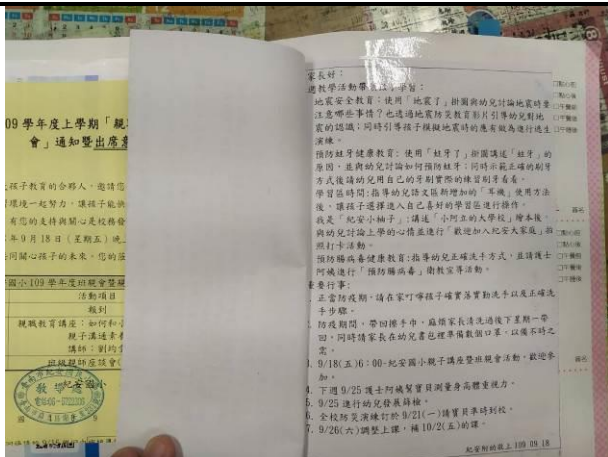 09 學年度上學期「親
會」通知暨出席意
孩子教育的合夥人，邀請您
環境一起努力，讓孩子能快
有您的支持與關心是校務發
年 9 月 18 日（星期五）晚上
同關心孩子的未來，您的蒞
國小 109 學年度班親會暨親
活動項目
報到
親職教育講座：如何和小
親子溝通素養
班級親師座談會(
紀安國小
家長好：
週教學活動帶
學習：
地震安全教育：使用「地震了」掛圖與幼兒討論地震時要
注意哪些事情？也透過地震防災教育影片引導幼兒對地
震的認識；同時引導孩子模擬地震時的應有做為進行逃生
演練。
預防蛀牙健康教育：使用「蛀牙了」掛圖講述「蛀牙」的
原因，並與幼兒討論如何預防蛀牙；同時示範正確的刷牙
方式後請幼兒用自己的牙刷實際的練習刷牙看看。
學習區時間：指導幼兒語文區新增加的「耳機」使用方法
後，讓孩子選擇進入自己喜好的學習區進行操作。
我是「紀安小柚子」：講述「小阿立的大學校」繪本後，
與幼兒討論上學的心情並進行「歡迎加入紀安大家庭」拍
照打卡活動。
預防腸病毒健康教育：指導幼兒正確洗手方式，並請護士
阿姨進行「預防腸病毒」衛教宣導活動。
重要行事：
正當防疫期，請在家叮嚀孩子確實落實勤洗手以及正確洗
手步驟。
防疫期間，帶回擦手巾，麻煩家長清洗過後下星期一帶
回，同時請家長在幼兒書包裡準備數個口罩，以備不時之
需。
9/18(五)6：00-紀安國小親子講座暨班親會活動，歡迎參
加。
下週 9/25 護士阿姨幫寶貝測量身高體重視力。
5. 9/25 進行幼兒發展篩檢。
6. 全校防災演練訂於 9/21(一)請寶貝準時到校。
7. 9/26(六)調整上課，補 10/2(五)的課。
紀安附幼親上 109 09 18
□點心前
□點心後
□午餐前
□午餐後
□午睡後
簽名
□點心前
□點心後
□午餐前
□午餐後
□午睡後
簽名